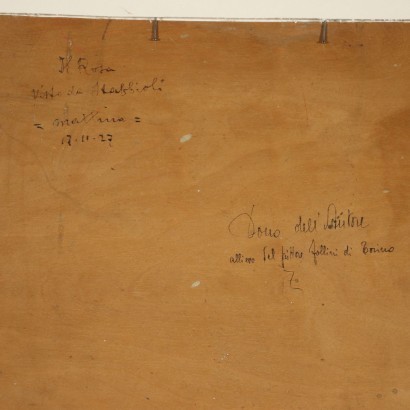 Il Rosa
visto da Stabbioli
= mattina =
17-11-27
Dono dell'Autore
allievo del pittore Follini di Torino